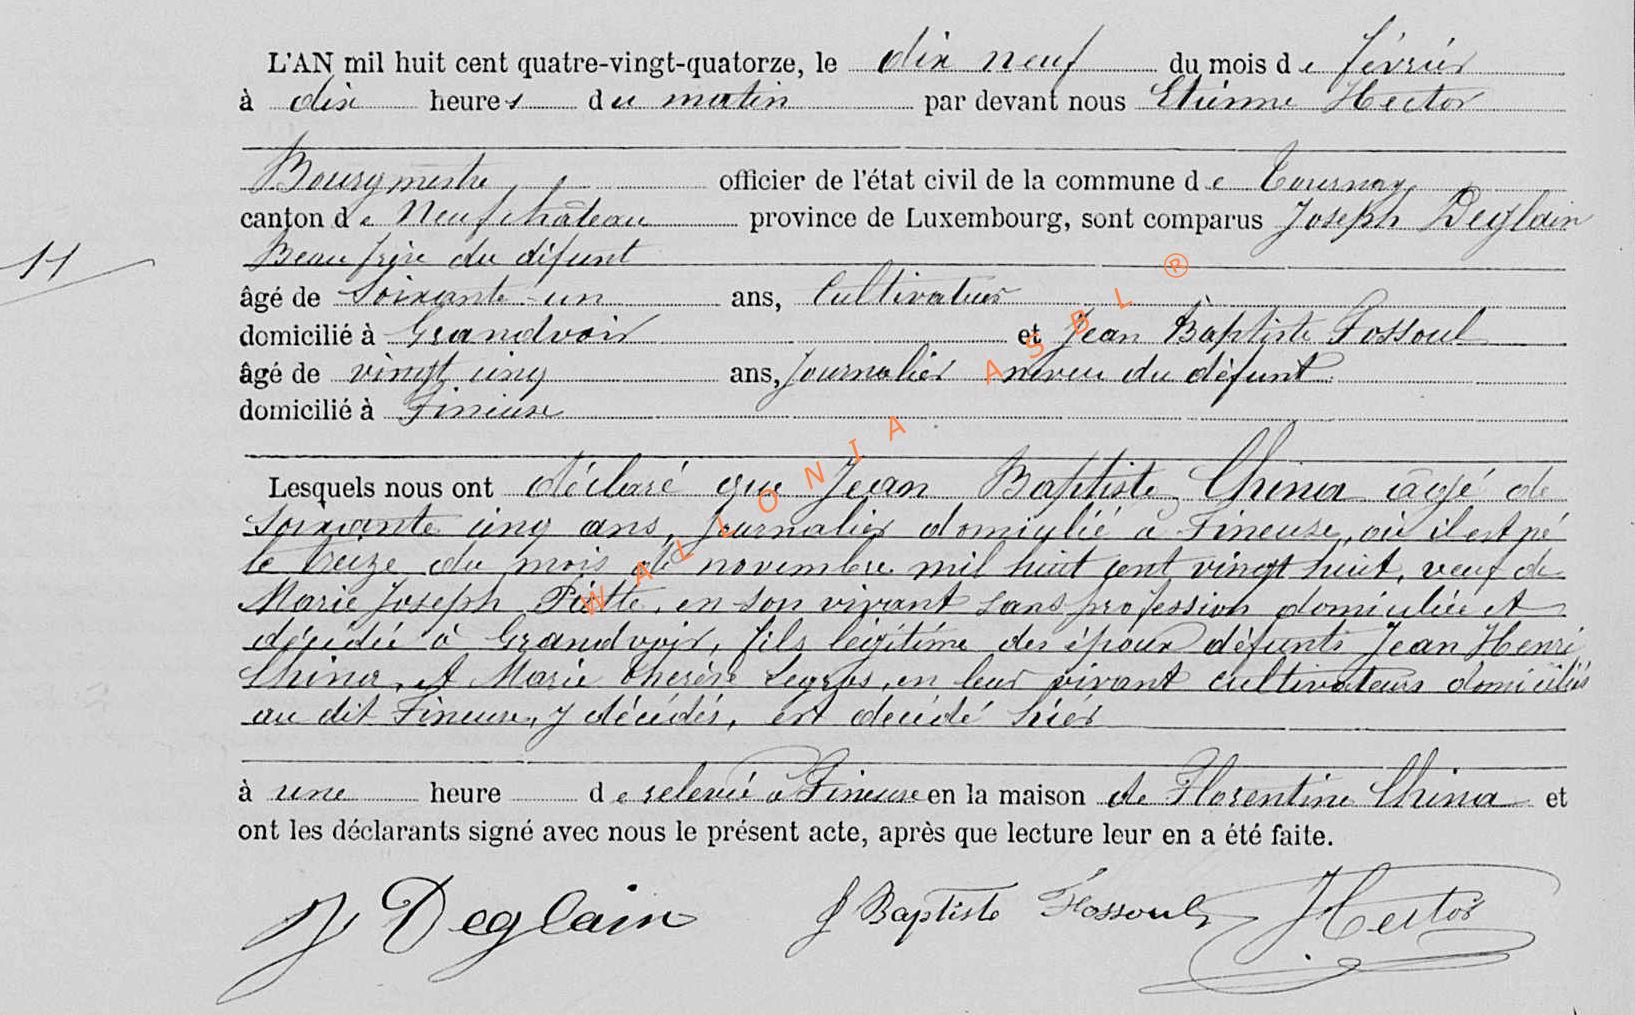 L'AN mil huit cent quatre-vingt-quatorze, le dix neuf du mois de février
à dix heures du matin par devant nous Etienne Hector
Bourgmestre officier de l'état civil de la commune de Tournay
canton de Neufchâteau province de Luxembourg, sont comparus Joseph Deglain
Beau frère du défunt
11
âgé de soixante-un ans, Cultivateur
domicilié à Grandvoir et Jean Baptiste Fossoul
âgé de vingt cinq ans, Journalier neveu du défunt
domicilié à Fineuse
Lesquels nous ont déclaré que Jean Baptiste China âgé de
soixante cinq ans, journalier domicilié à Fineuse, où il est né
le treize du mois de novembre mil huit cent vingt huit, veuf de
Marie Joseph, en son vivant sans profession domiciliée et
décédée à Grandvoir, fils légitime des époux défunts Jean Henri
China, et Marie thérèse, en leur vivant cultivateurs domiciliés
au dit Fineuse, y décédés, est décédé hier
à une heure de relevée à Fineuse en la maison de Florentine China et
ont les déclarants signé avec nous le présent acte, après que lecture leur en a été faite.
J Deglain J Baptiste Fossoul Hector
WALLONIA ASBL ®